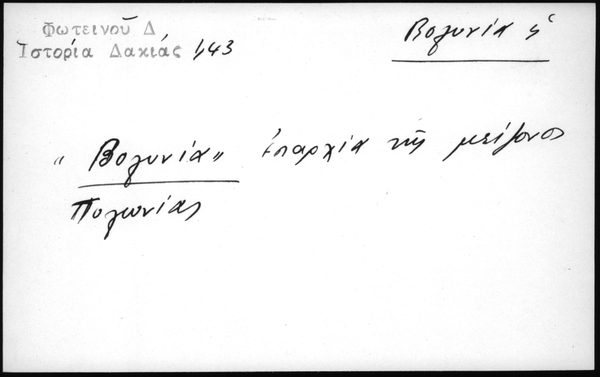 Φωτεινοῦ Δ
Ἱστορία Δακιάς 1,43
Βολυνία ἡ
"Βολυνία" ἐπαρχία τῆς μείζονος
Πολωνίας